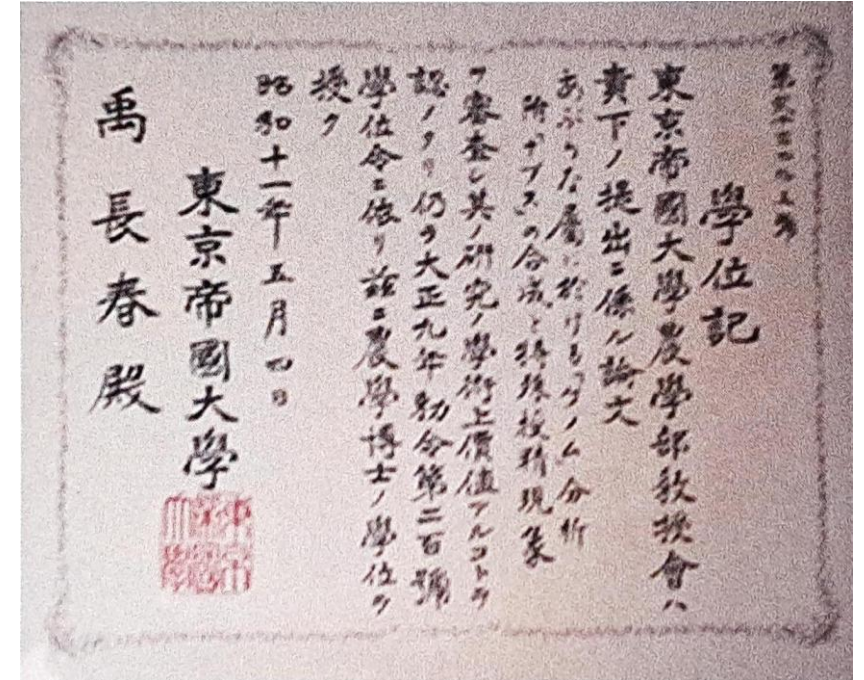 學位記
東京帝國大學農學部教授會ハ
貴下ノ提出ニ係ル論文
あぶらな屬に於ける「ゲノム」分析
附「ナプス」の合成と特殊授精現象
ヲ審査シ其ノ研究ノ學術上價値アルコトヲ
認メタリ仍テ大正九年勅令第二百號
學位令ニ依リ茲ニ農學博士ノ學位ヲ
授ク
昭和十一年五月四日
東京帝國大學
禹長春殿